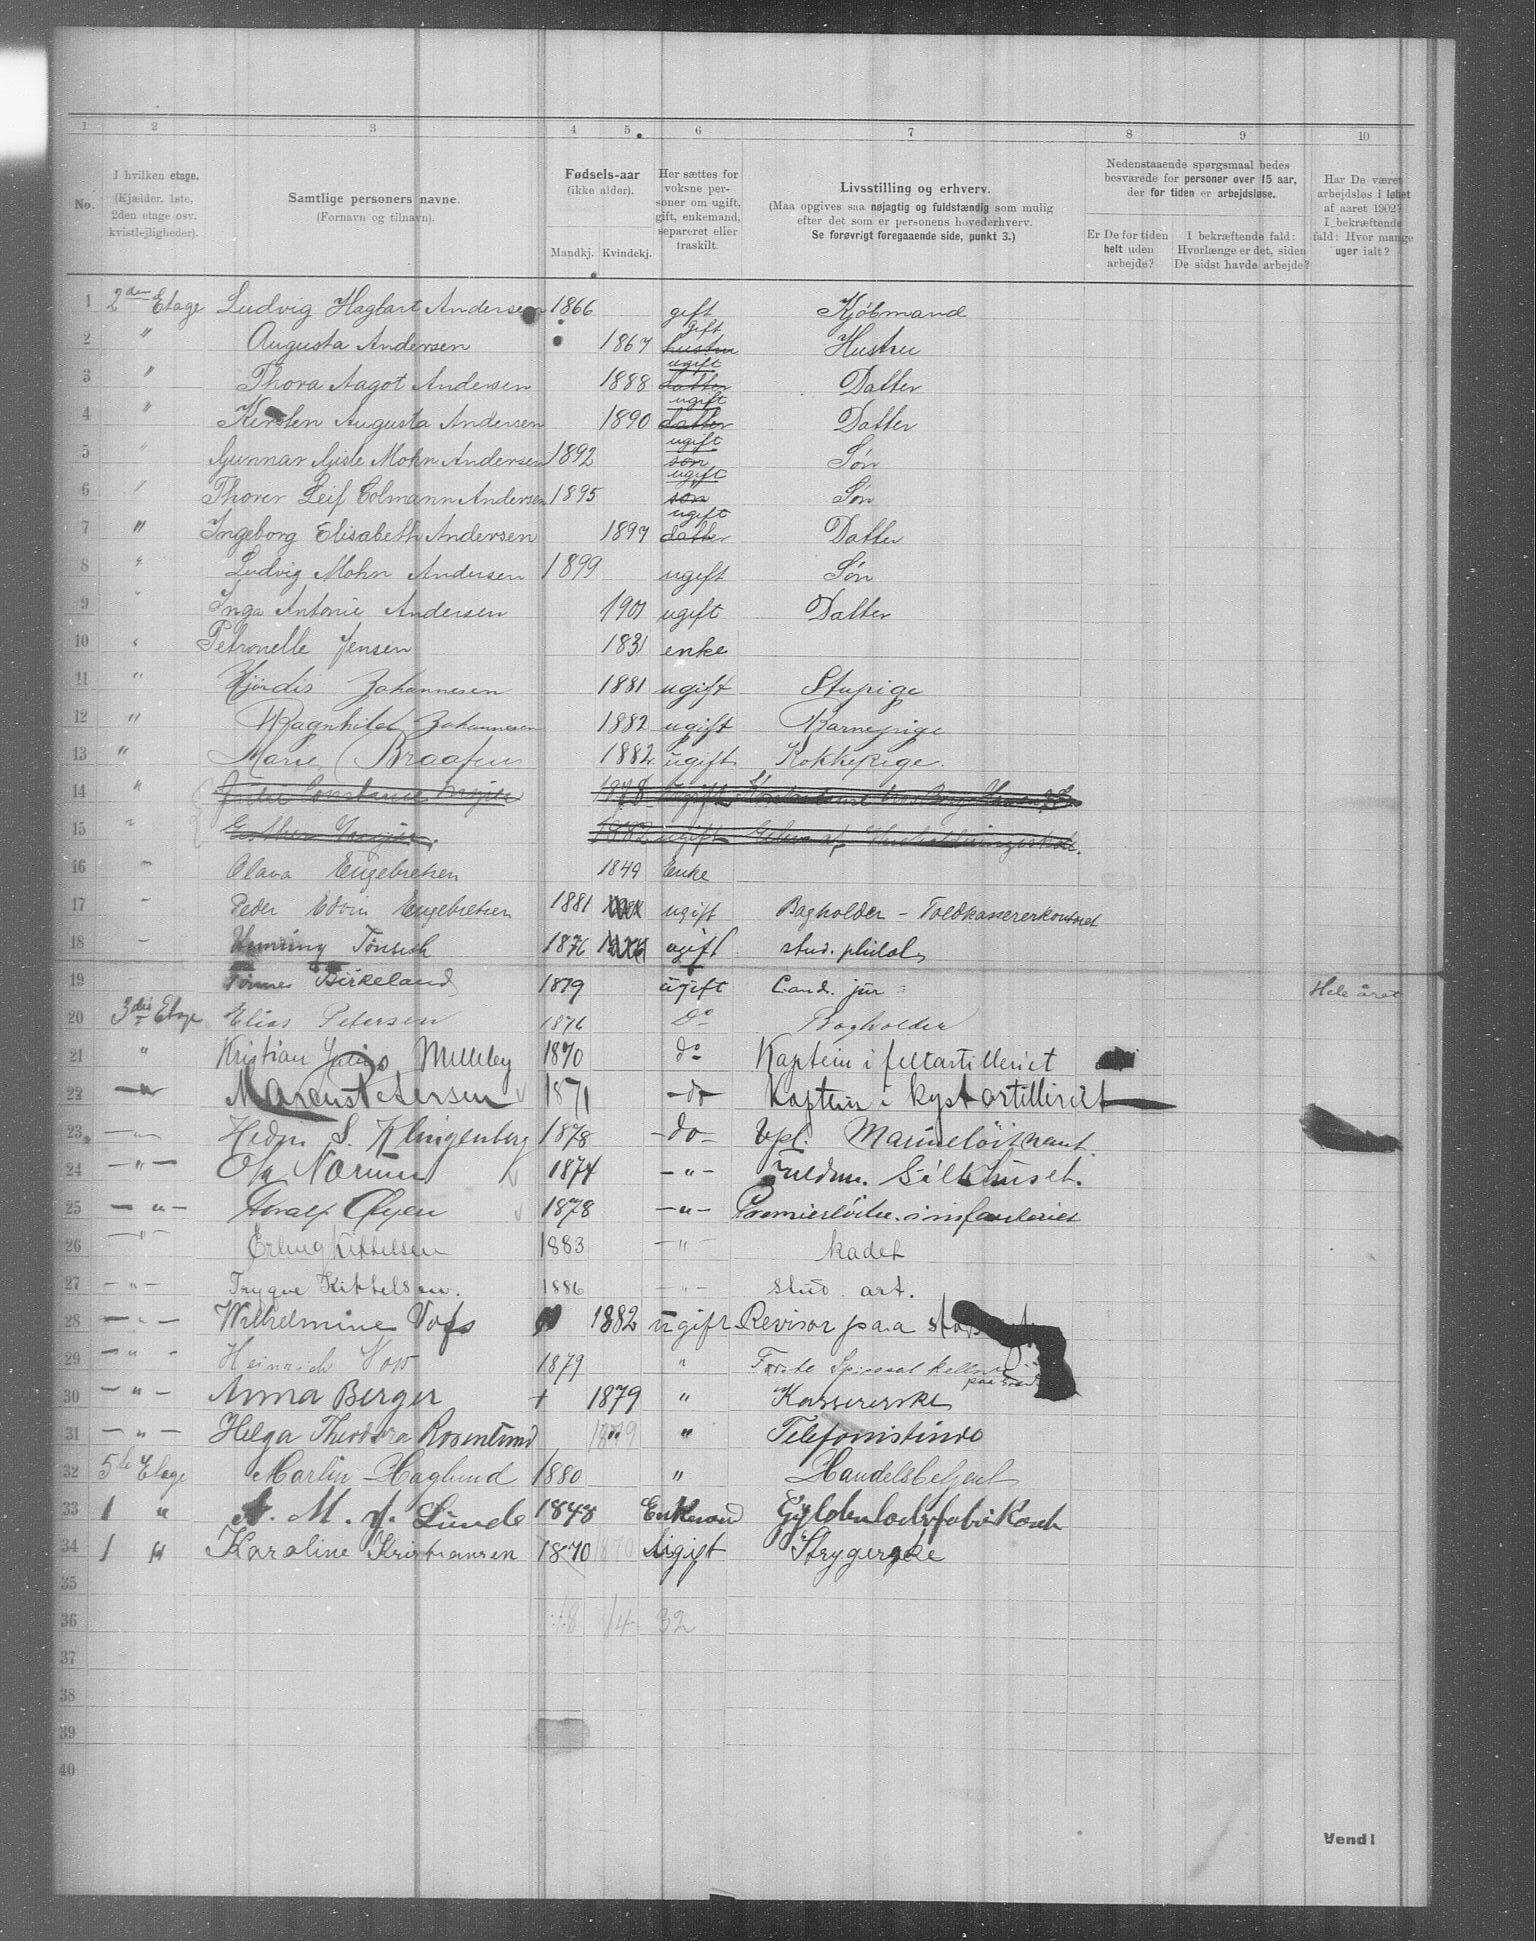 1 2 3 4 5 6 7 8 9 10
No.
I hvilken etage.
(Kjælder, 1ste,
2den etage osv.
kvistlejligheder).
Samtlige personers navne.
(Fornavn og tilnavn).
Fødsels-aar
(ikke alder).
Mandkj. Kvindekj.
Her sættes for
voksne per-
soner om ugift,
gift, enkemand,
separeret eller
fraskilt.
Livsstilling og erhverv.
(Maa opgives saa nøjagtig og fuldstændig som mulig
efter det som er personens hovederhverv.
Se forøvrigt foregaaende side, punkt 3.)
Nedenstaaende spørgsmaal bedes
besvarede for personer over 15 aar,
der for tiden er arbejdsløse.
Er De for tiden
helt uden
arbejde?
I bekræftende fald:
Hvorlænge er det, siden
De sidst havde arbejde?
Har De været
arbejdsløs i løbet
af aaret 1902?
I bekræftende
fald: Hvor mange
uger ialt?
1 2den Etage Ludvig Hagbart Andersen 1866 gift Kjøbmand
2 " Augusta Andersen 1867 hustru gift Hustru
3 " Thora Aagot Andersen 1888 datter ugift Datter
4 " Kirsten Augusta Andersen 1890 datter ugift Datter
5 " Gunnar Gisle Mohn Andersen 1892 søn ugift Søn
6 " Thorer Leif Colmann Andersen 1895 søn ugift Søn
7 " Ingeborg Elisabeth Andersen 1897 datter ugift Datter
8 " Ludvig Mohn Andersen 1899 ugift Søn
9 " Inga Antonie Andersen 1901 ugift Datter
10 " Petronelle Jensen 1831 enke
11 " Hjördis Johannesen 1881 ugift Stupige
12 " Ragnhild Johannesen 1882 ugift Barnepige
13 " Marie 1882 ugift Kokkepige.
14 " Constance 1878 ugift
15 " Esther 1882 ugift
16 " Olava Engebretsen 1849 Enke
17 " Peder Edvin Engebretsen 1881 ugift Bogholder - Toldkassererkontoret
18 " Henning Tønseth 1876 ugift stud. philol.
19 Tønnes Birkeland 1879 ugift Cand. jur Hele året
20 3die Etage Elias Petersen 1876 do Bogholder
21 " Kristian Julius Melleby 1870 do Kaptein i feltartilleriet
22 " Marcus Petersen 1871 do Kaptein i kystartilleriet
23 " S. Klingenberg 1878 do Vpl. Marineløitnant.
24 " Ole Narum 1874 " Fuldm.
25 " Thoralf Øyen 1878 " Premierløitn. i infanteriet
26 " Erling Kittelsen 1883 " kadet
27 " Trygve Kittelsen. 1886 " stud. art.
28 " Wilhelmine Voss 1882 ugift Revisor paa
29 " Heinrich Voss 1879 " Første Spisesal kellner paa
30 " Anna Berger + 1879 " Kassererske
31 " Helga Theodora Rosenlund 1879 " Telefonistinde
32 5te Etage Martin Haglund 1880 " Handelsbetjent
33 1 " A. M. J. Lunde 1848 Enkemand
34 1 " Karoline Kristiansen 1870 1870 Ugift Strygerske
35
36 18 14 32
37
38
39
40
Vend!